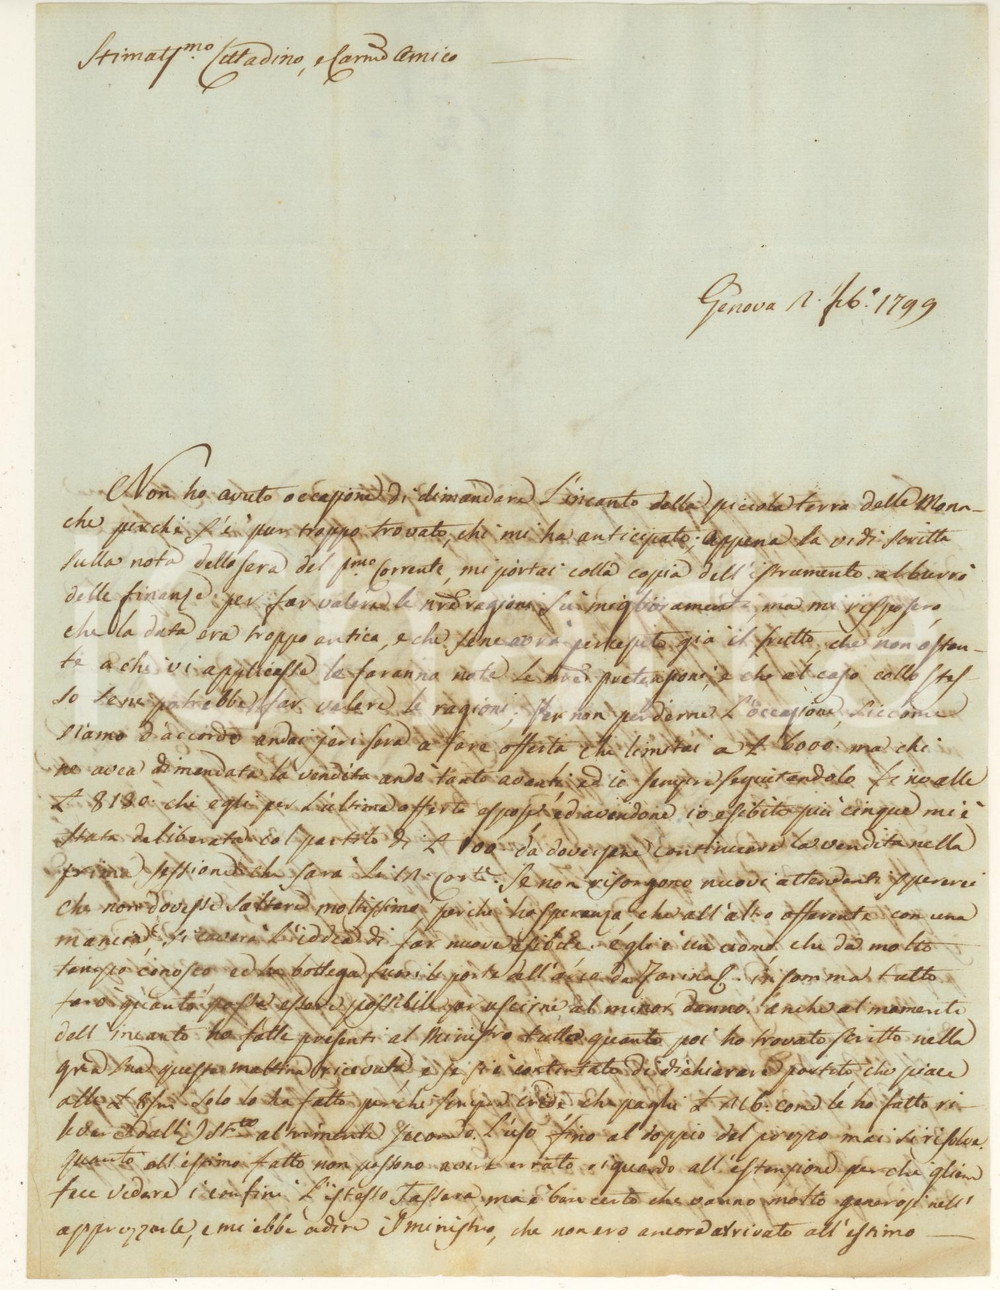 Stimatis.mo Cittadino, e Car.mo Amico
Genova 2. feb.o 1799
Non ho avuto occasione di dimandare l'incanto della piccola terra delle Mona-
che perchè s'è pur troppo trovato, chi mi ha anticipato; appena la vidi scritta
sulla nota della sera del p.mo corrente, mi portai colla copia dell'istrumento al burrò
delle finanze per far valere le nre ragioni sui miglioramenti, ma mi risposero,
che la data era troppo antica, e che sene avrà percepito già il frutto, che non ostan-
te a chi vi applicasse le faranno note le nre pretensioni, e che al caso collo stes-
so sene potrebbe far valere le ragioni; Per non perderne l'occasione siccome
siamo d'accordo andai jeri sera a fare offerta che limitai a £ 6000. ma chi
ne avea dimandata la vendita andò tanto avanti ed io sempre seguitandolo fino alle
£ 8180. che egli per l'ultima offerta esposse ed avendone io esibito più cinque mi è
stata deliberata col partito di £ 100 da doversene continuare la vendita nella
prima sessione che sarà li 12. corr.te Se non risorgono nuovi attendenti spererei
che non dovesse saltare moltissimo, perchè ho speranza, che all'altro offerente con una
mancia, si caverà l'idea di far nuove esibite. egli è un uomo, che da molto
tempo conosco ed ha bottega fuori le porte dell'arco da Farinal. in somma tutto
farò quanto possa essere possibile per uscirne al minor danno. anche al momento
dell'incanto ho fatto presenti al Ministro tutto quanto poi ho trovato scritto nella
gra sua questa mattina ricevuta, e si è contentato di dichiarare partito che piace
alle £ 8/m. solo lo ha fatto perchè sempre crede che paghi £ 216. come le ho fatto ri-
altrimente secondo l'uso fino al doppio del prezzo mai si risolve.
quanto all'estimo fatto non possono aver errato riguardo all'estensione perchè gliene
fece vedere i confini l'istesso Tassara, ma è ben certo che vanno molto generosi nell'
apprezzarle, e mi ebbe a dire il ministro, che non ero ancora arrivato all'estimo